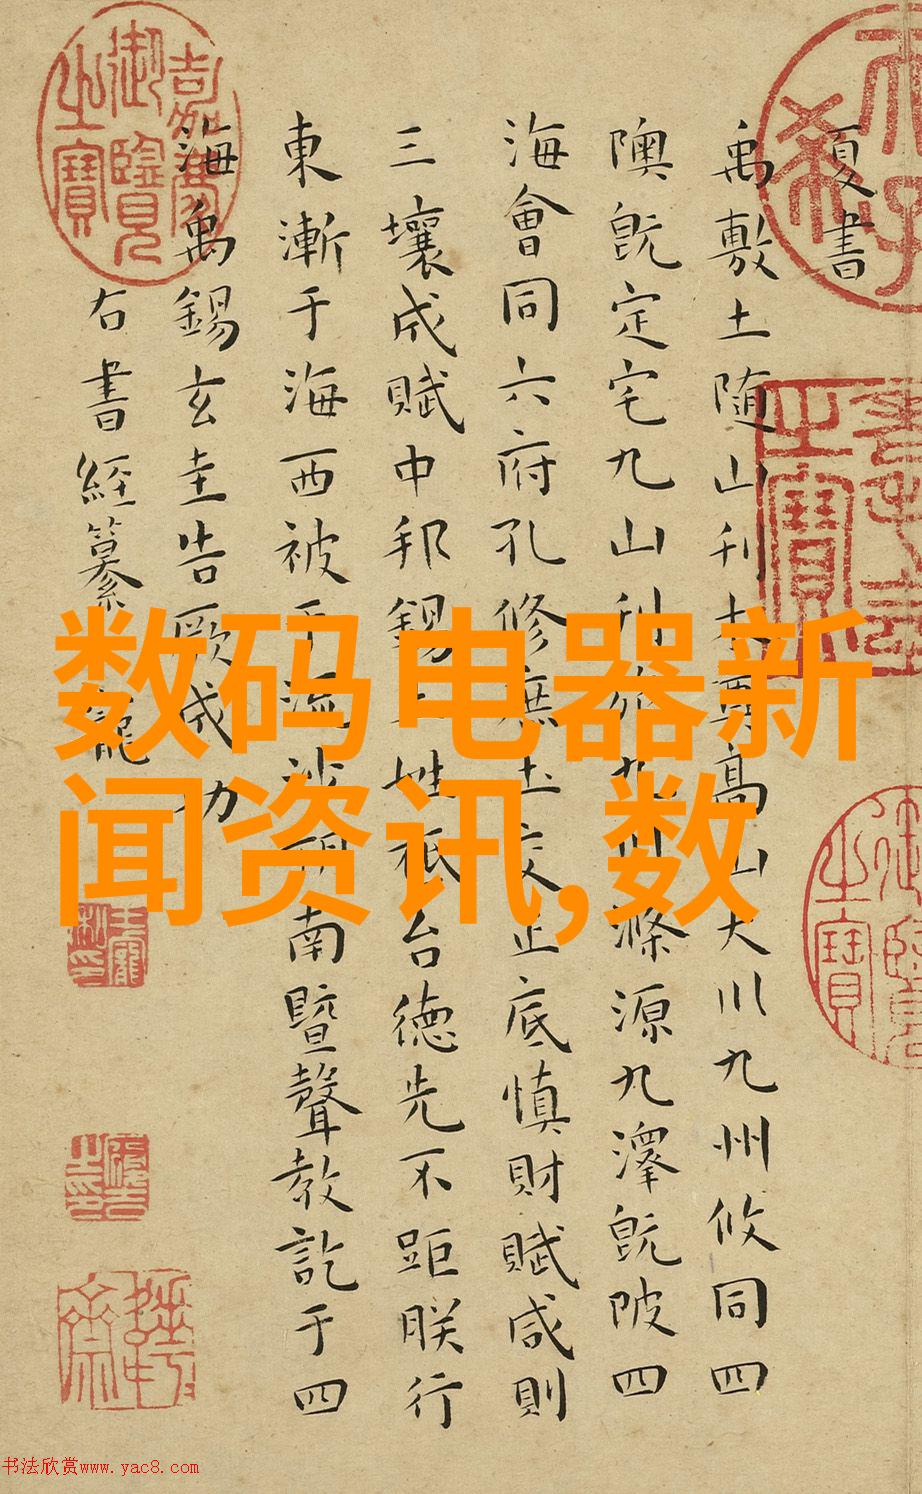 夏書
禹敷土随山刊木奠高山大川九州攸同四
隩既定宅九山刊旅九川滌源九澤既陂四
海會同六府孔修庶土交正底慎財賦咸則
三壤成賦中邦錫土姓祇台德先不距朕行
東漸于海西被于流沙朔南暨聲教訖于四
海禹錫玄圭告厥成功
右書經纂 寵
嘉慶御覽之寶
数码电器新
闻资讯,数
书法欣赏www.yac8.com